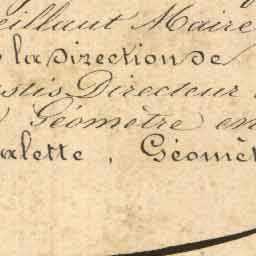 eillant Maire
la Direction de
stis Directeur
Géomètre en
alette, Géomèt